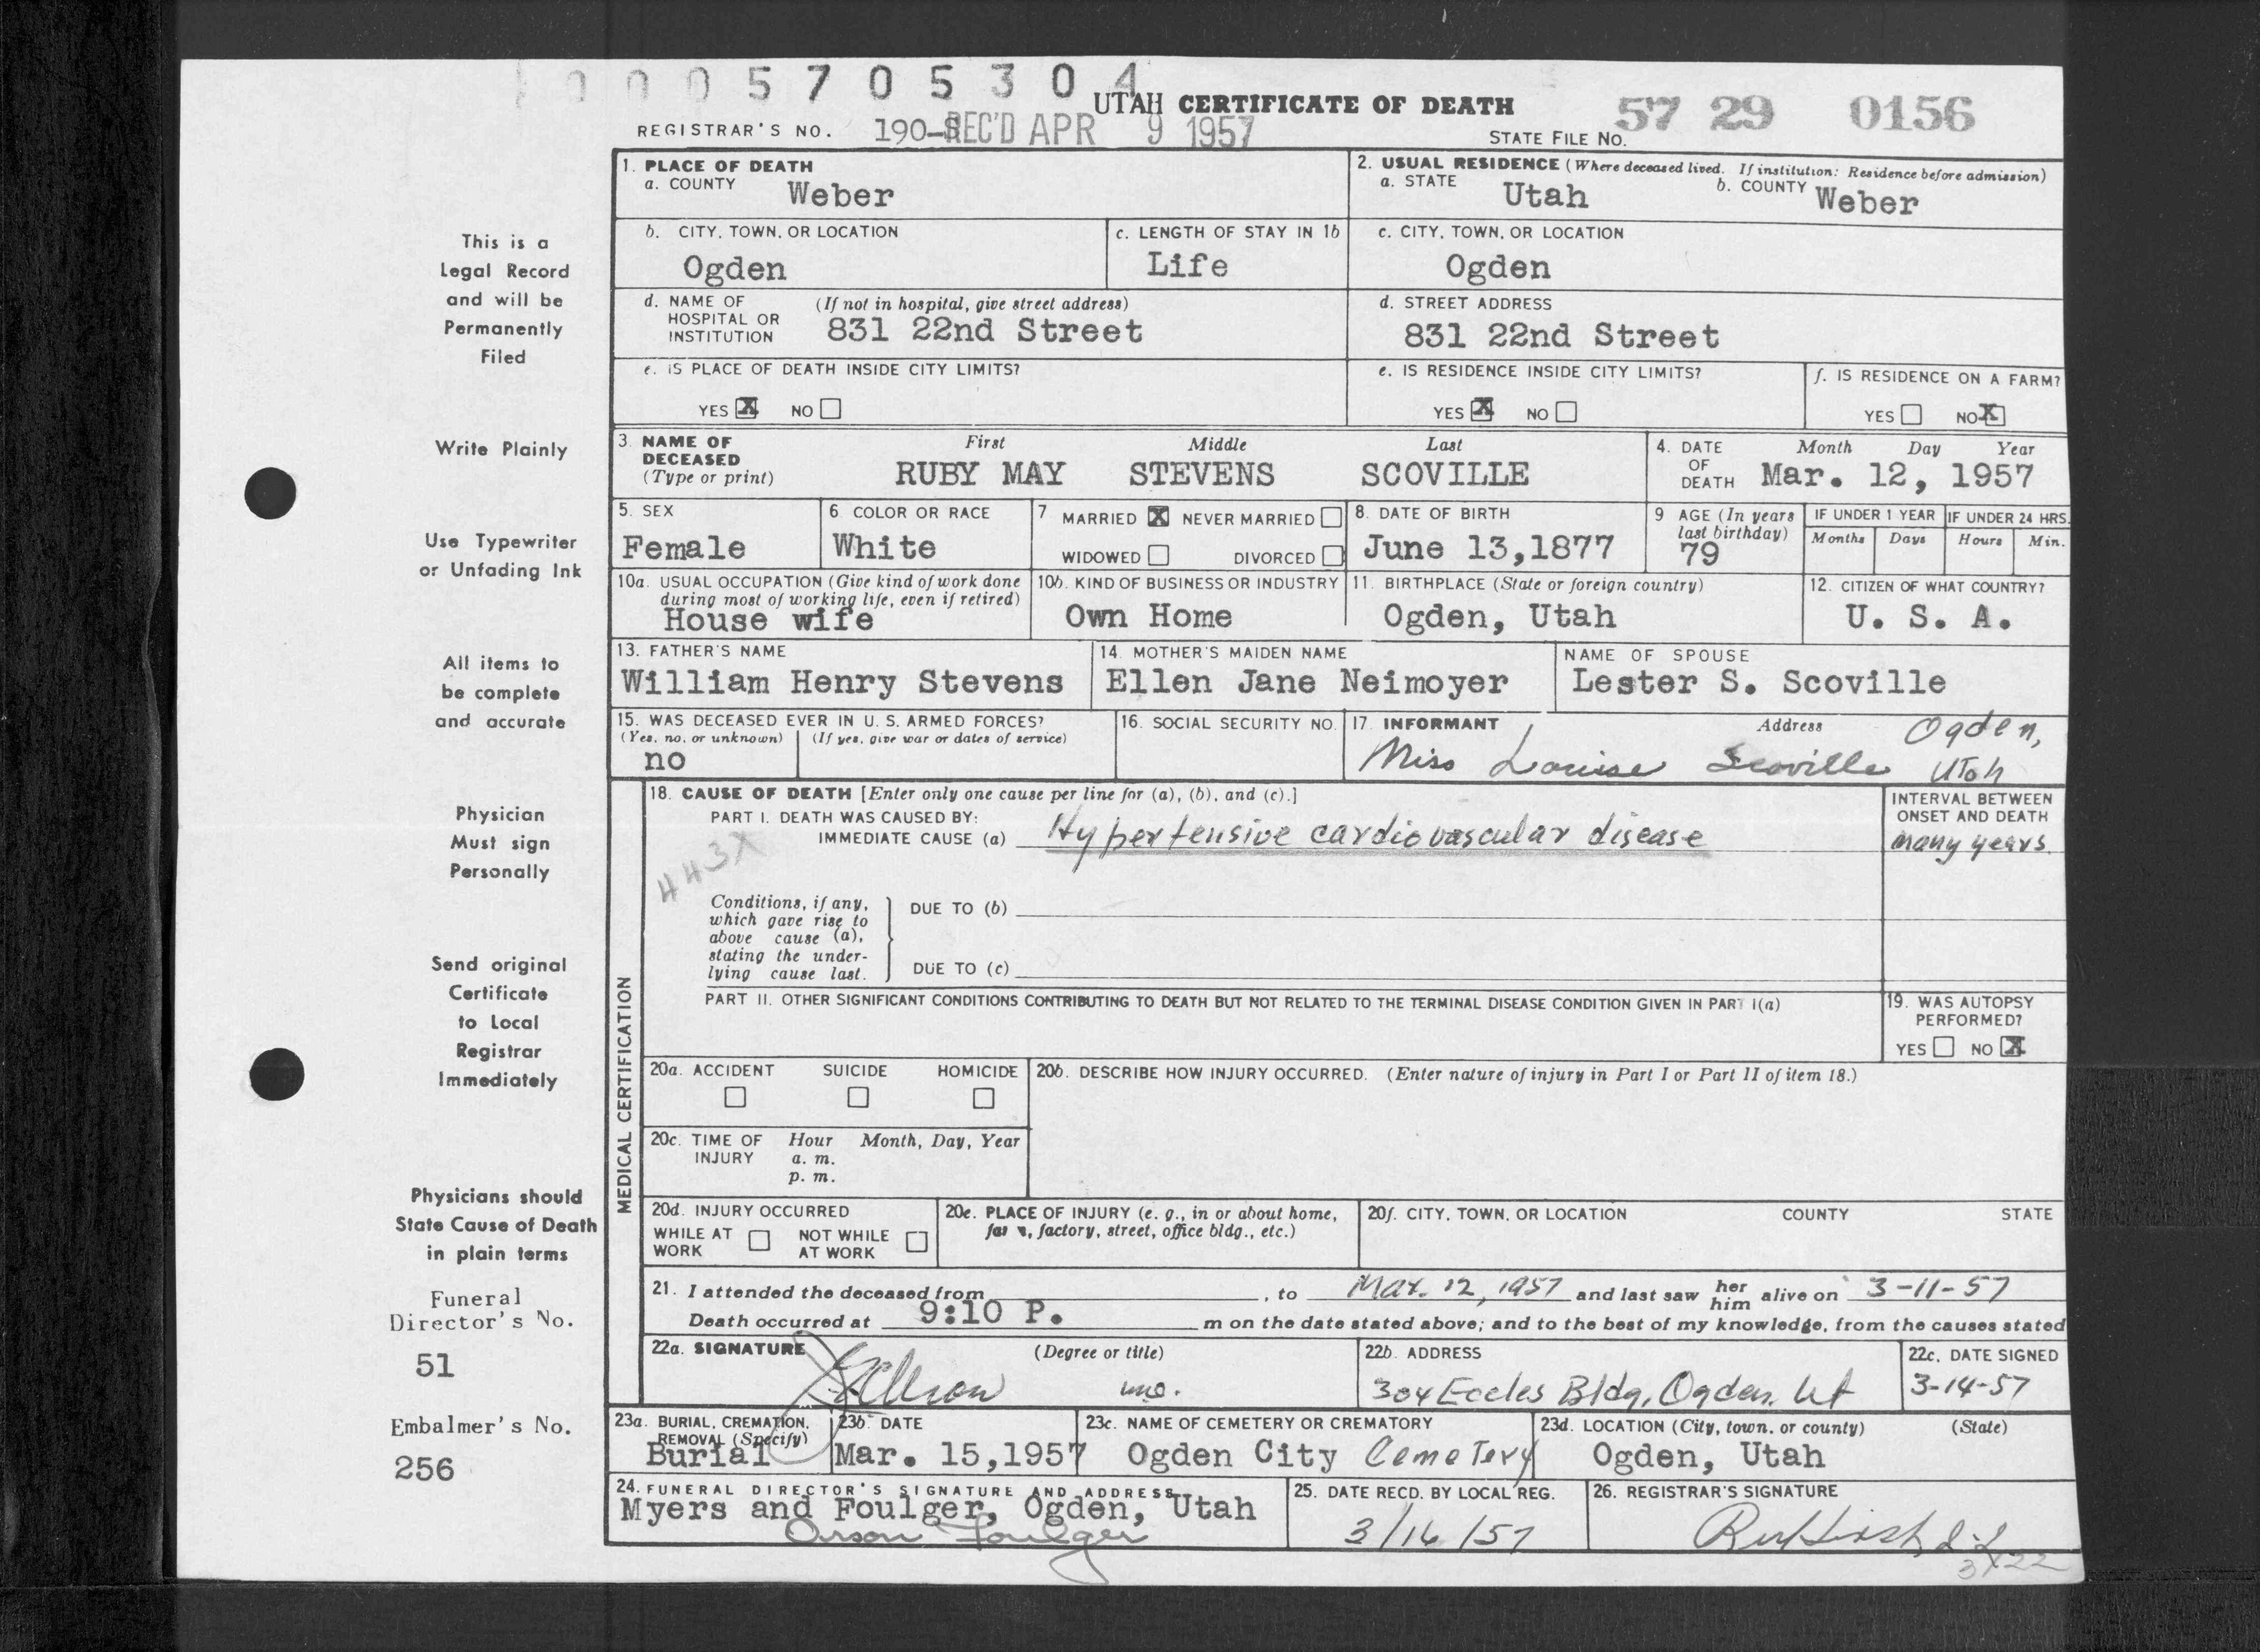 0 0 0 5 7 0 5 3 0 4
UTAH CERTIFICATE OF DEATH
57 29 0156
REGISTRAR'S NO. 190-S
REC'D APR 9 1957
STATE FILE NO.
1. PLACE OF DEATH
a. COUNTY Weber
2. USUAL RESIDENCE (Where deceased lived. If institution: Residence before admission)
a. STATE Utah b. COUNTY Weber
b. CITY, TOWN, OR LOCATION
Ogden
c. LENGTH OF STAY IN 1b
Life
c. CITY, TOWN, OR LOCATION
Ogden
d. NAME OF HOSPITAL OR INSTITUTION (If not in hospital, give street address)
831 22nd Street
d. STREET ADDRESS
831 22nd Street
e. IS PLACE OF DEATH INSIDE CITY LIMITS?
YES X NO
e. IS RESIDENCE INSIDE CITY LIMITS?
YES X NO
f. IS RESIDENCE ON A FARM?
YES NO X
3. NAME OF DECEASED (Type or print)
First Middle Last
RUBY MAY STEVENS SCOVILLE
4. DATE OF DEATH Month Day Year
Mar. 12, 1957
5. SEX
Female
6. COLOR OR RACE
White
7 MARRIED X NEVER MARRIED
WIDOWED DIVORCED
8. DATE OF BIRTH
June 13,1877
9 AGE (In years last birthday)
79
IF UNDER 1 YEAR
Months Days
IF UNDER 24 HRS.
Hours Min.
10a. USUAL OCCUPATION (Give kind of work done during most of working life, even if retired)
House wife
10b. KIND OF BUSINESS OR INDUSTRY
Own Home
11. BIRTHPLACE (State or foreign country)
Ogden, Utah
12. CITIZEN OF WHAT COUNTRY?
U. S. A.
13. FATHER'S NAME
William Henry Stevens
14. MOTHER'S MAIDEN NAME
Ellen Jane Neimoyer
NAME OF SPOUSE
Lester S. Scoville
15. WAS DECEASED EVER IN U. S. ARMED FORCES?
(Yes, no, or unknown) (If yes, give war or dates of service)
no
16. SOCIAL SECURITY NO.
17. INFORMANT Address
Miss Louise Scoville Ogden, Utah
MEDICAL CERTIFICATION
18. CAUSE OF DEATH [Enter only one cause per line for (a), (b), and (c).]
PART I. DEATH WAS CAUSED BY:
IMMEDIATE CAUSE (a) Hypertensive cardiovascular disease
443X
INTERVAL BETWEEN ONSET AND DEATH
many years
Conditions, if any, which gave rise to above cause (a), stating the underlying cause last.
DUE TO (b)
DUE TO (c)
PART II. OTHER SIGNIFICANT CONDITIONS CONTRIBUTING TO DEATH BUT NOT RELATED TO THE TERMINAL DISEASE CONDITION GIVEN IN PART I(a)
19. WAS AUTOPSY PERFORMED?
YES NO X
20a. ACCIDENT SUICIDE HOMICIDE
20b. DESCRIBE HOW INJURY OCCURRED. (Enter nature of injury in Part I or Part II of item 18.)
20c. TIME OF INJURY Hour Month, Day, Year
a. m.
p. m.
20d. INJURY OCCURRED
WHILE AT WORK NOT WHILE AT WORK
20e. PLACE OF INJURY (e. g., in or about home, farm, factory, street, office bldg., etc.)
20f. CITY, TOWN, OR LOCATION COUNTY STATE
21. I attended the deceased from , to Mar. 12, 1957 and last saw her him alive on 3-11-57
Death occurred at 9:10 P. m on the date stated above; and to the best of my knowledge, from the causes stated
22a. SIGNATURE (Degree or title)
22b. ADDRESS
304 Eccles Bldg, Ogden, Ut
22c. DATE SIGNED
3-14-57
23a. BURIAL, CREMATION, REMOVAL (Specify)
Burial
23b. DATE
Mar. 15,1957
23c. NAME OF CEMETERY OR CREMATORY
Ogden City Cemetery
23d. LOCATION (City, town, or county) (State)
Ogden, Utah
24. FUNERAL DIRECTOR'S SIGNATURE AND ADDRESS
Myers and Foulger, Ogden, Utah
Orson Foulger
25. DATE RECD. BY LOCAL REG.
3/16/57
26. REGISTRAR'S SIGNATURE
This is a
Legal Record
and will be
Permanently
Filed
Write Plainly
Use Typewriter
or Unfading Ink
All items to
be complete
and accurate
Physician
Must sign
Personally
Send original
Certificate
to Local
Registrar
Immediately
Physicians should
State Cause of Death
in plain terms
Funeral
Director's No.
51
Embalmer's No.
256